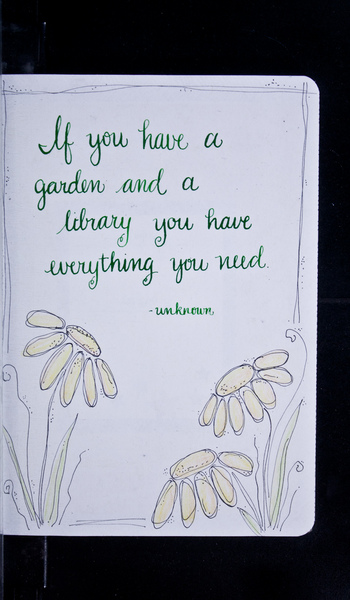 If you have a
garden and a
library you have
everything you need.
-unknown